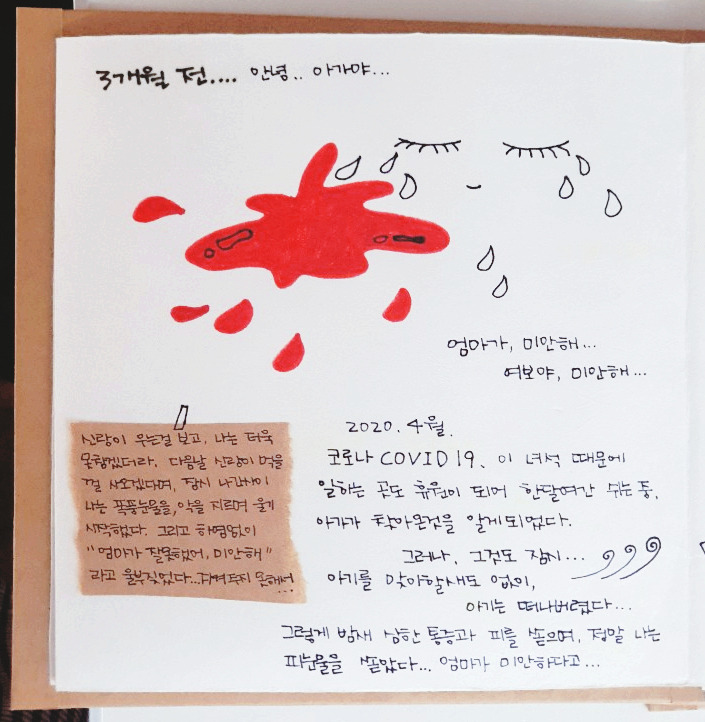 3개월 전.... 안녕.. 아가야...
엄마가, 미안해...
여보야, 미안해...
신랑이 우는걸 보고, 나는 더욱
못참겠더라. 다음날 신랑이 먹을
걸 사오겠다며, 잠시 나간사이
나는 폭풍눈물을, 악을 지르며 울기
시작했다. 그리고 하염없이
"엄마가 잘못했어, 미안해"
라고 울부짖었다...지켜주지 못해서...
2020. 4월.
코로나 COVID19. 이 녀석 때문에
일하는 곳도 휴원이 되어 한달여간 쉬는 중,
아가가 찾아온것을 알게되었다.
그러나, 그것도 잠시...
아기를 맞아할새도 없이,
아기는 떠나버렸다...
그렇게 밤새 심한 통증과 피를 쏟으며, 정말 나는
피눈물을 쏟았다... 엄마가 미안하다고...